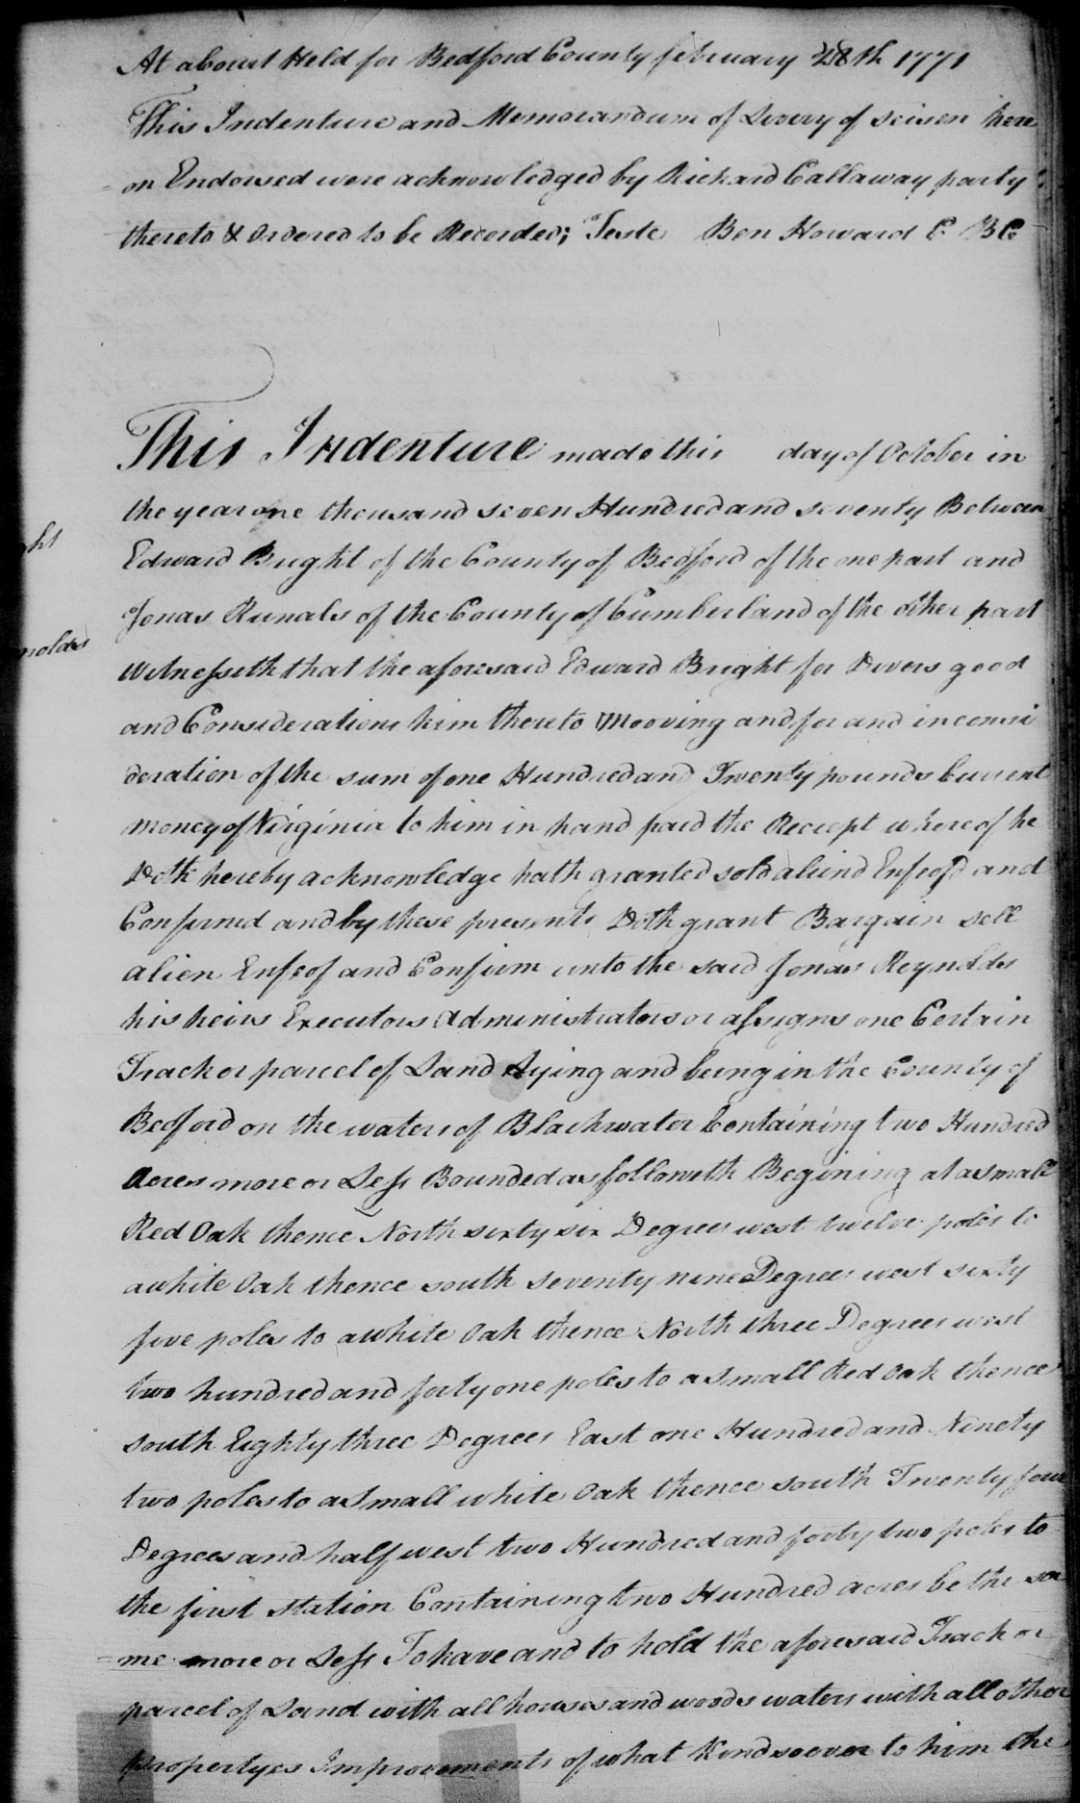 At a Court Held for Bedford County february 28th 1771
This Indenture and Memorandum of Livery of seisen here
on Endorsed were acknowledged by Richard Callaway party
thereto & Ordered to be Recorded; Teste Ben Howard C. B C
This Indenture made this day of October in
the year one thousand seven Hundred and seventy Between
ght
Edward Bright of the County of Bedford of the one part and
Jonas Runals of the County of Cumberland of the other part
nolds
Witnesseth that the aforesaid Edward Bright for Divers good
and Considerations him thereto Mooving and for and in consi
deration of the sum of one Hundred and Twenty pounds Current
money of Virginia to him in hand paid the Receipt whereof he
Doth hereby acknowledge hath granted sold aliend Enfeofd and
Confirmd and by these presents Doth grant Bargain sell
alien Enfeof and Confirm unto the said Jonas Reynolds
his heirs Executors Administrators or assigns one Certain
Track or parcel of Land Lying and being in the County of
Bedford on the waters of Blackwater Containing two Hundred
Acres more or Less Bounded as followeth Begining at a small
Red Oak thence North sixty six Degrees west twelve poles to
a white Oak thence south seventy nine Degrees west sixty
five poles to a white Oak thence North three Degrees west
two hundred and forty one poles to a small Red Oak thence
south Eighty three Degrees East one Hundred and Ninety
two poles to a small white Oak thence south Twenty four
Degrees and half west two Hundred and forty two poles to
the first station Containing two Hundred acres be the sa
me more or Less To have and to hold the aforesaid Track or
parcel of Land with all houses and woods waters with all other
propertyes Improvements of what Kind soever to him the